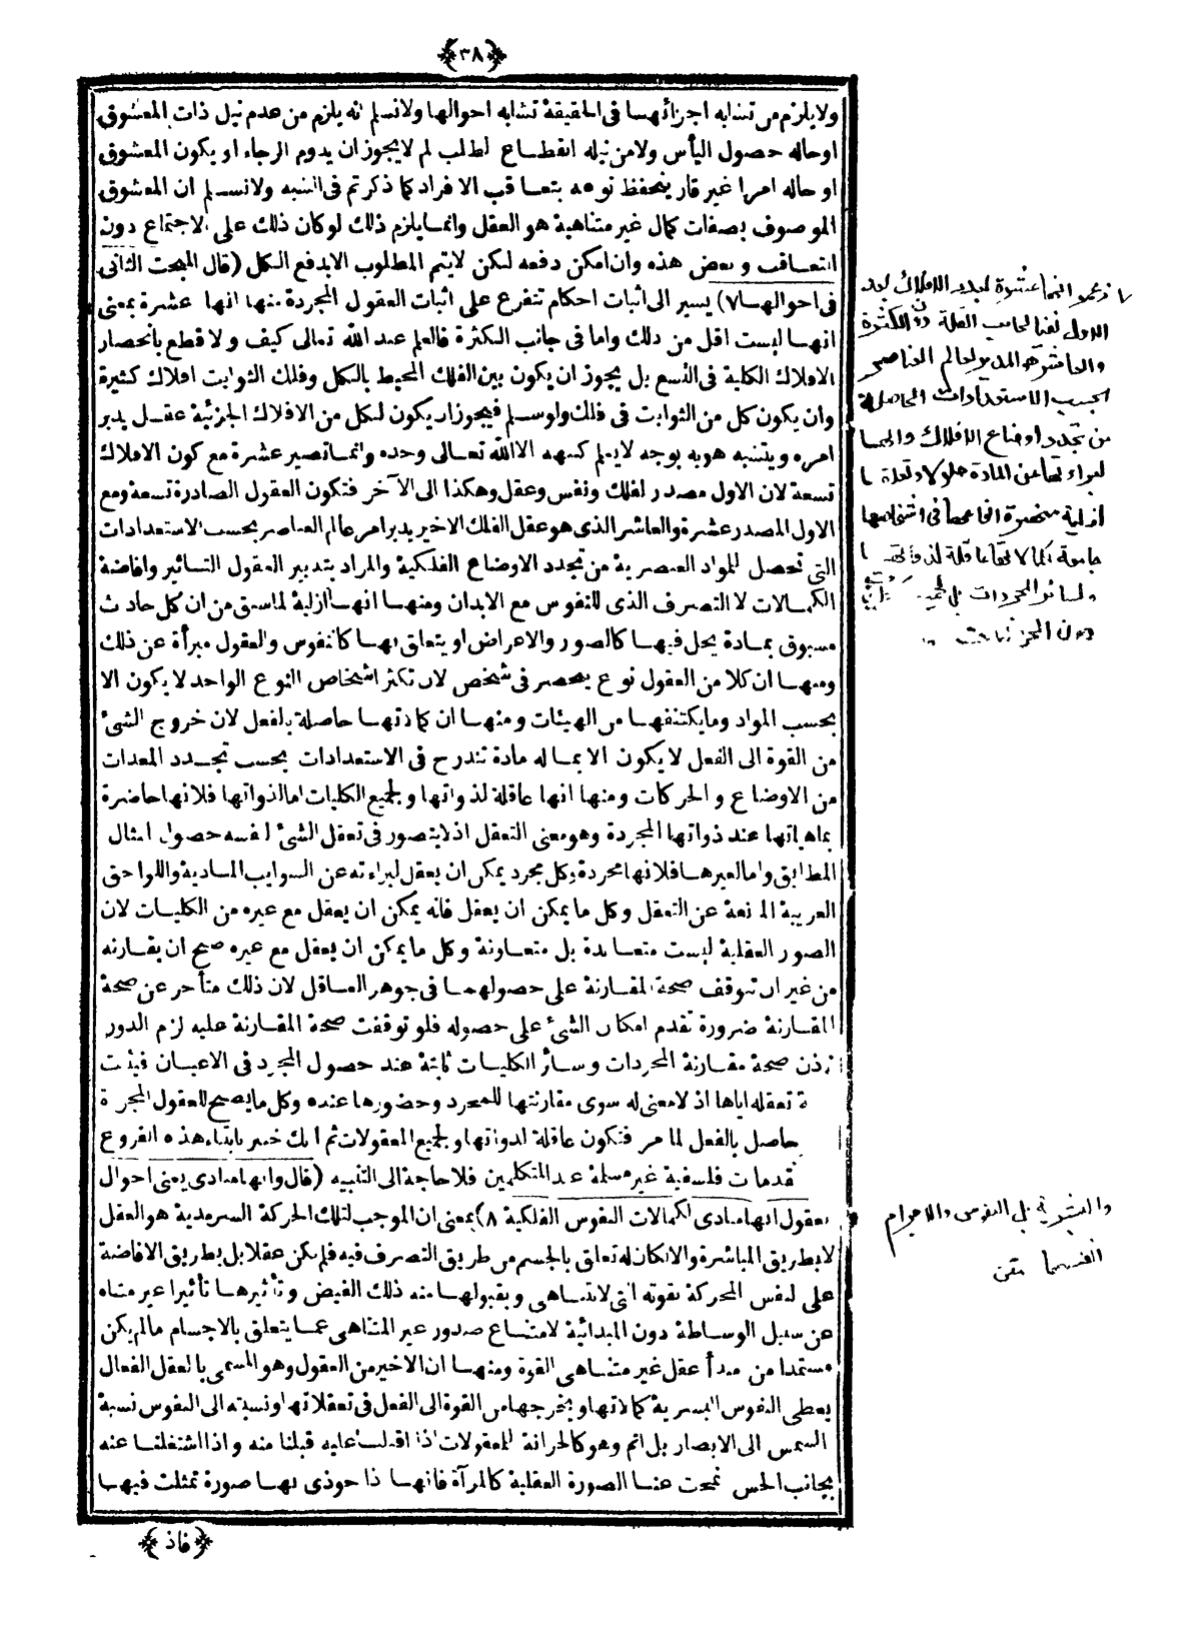 ﴿٣٨﴾
ولا يلزم من تشابه اجزائهما فى الحقيقة تشابه احوالها ولا نسلم انه يلزم من عدم نيل ذات المعشوق
او حاله حصول اليأس ولا من نيله انقطاع الطلب لم لا يجوز ان يدوم الرجاء او يكون المعشوق
او حاله امرا غير قار ينحفظ نوعه بتعاقب الافراد كما ذكرتم فى الشبه ولا نسلم ان المعشوق
الموصوف بصفات كمال غير متناهية هو العقل وانما يلزم ذلك لو كان ذلك على الاجتماع دون
التعاقب وبعض هذه وان امكن دفعه لكن لا يتم المطلوب الا بدفع الكل (قال المبحث الثانى
فى احوالها ٧) يسير الى اثبات احكام تتفرع على اثبات العقول المجردة منها انها عشرة بمعنى
انها ليست اقل من ذلك واما فى جانب الكثرة فالعلم عند الله تعالى كيف ولا قطع بانحصار
الافلاك الكلية فى التسع بل يجوز ان يكون بين الفلك المحيط بالكل وفلك الثوابت افلاك كثيرة
وان يكون كل من الثوابت فى فلك ولو سلم فيجوز ان يكون لكل من الافلاك الجزئية عقل يدبر
امره ويتشبه هو به بوجه لا يعلم كنهه الا الله تعالى وحده وانما تصير عشرة مع كون الافلاك
تسعة لان الاول مصدر لفلك ونفس وعقل وهكذا الى الآخر فتكون العقول الصادرة تسعة ومع
الاول المصدر عشرة والعاشر الذى هو عقل الفلك الاخير يدبر امر عالم العناصر بحسب الاستعدادات
التى تحصل للمواد العنصرية من تجدد الاوضاع الفلكية والمراد بتدبير العقول التأثير وافاضة
الكمالات لا التصرف الذى للنفوس مع الابدان ومنها انها أزلية لما سبق من ان كل حادث
مسبوق بمادة يحل فيها كالصور والاعراض او يتعلق بها كالنفوس والعقول مبرأة عن ذلك
ومنها ان كلا من العقول نوع ينحصر فى شخص لان تكثر اشخاص النوع الواحد لا يكون الا
بحسب المواد وما يكتنفها من الهيئات ومنها ان كمالاتها حاصلة بالفعل لان خروج الشئ
من القوة الى الفعل لا يكون الا بماله مادة تتدرج فى الاستعدادات بحسب تجدد المعدات
من الاوضاع والحركات ومنها انها عاقلة لذواتها ولجميع الكليات اما لذواتها فلانها حاضرة
بماهياتها عند ذواتها المجردة وهو معنى التعقل اذ لا يتصور فى تعقل الشئ لنفسه حصول المثال
المطابق واما لغيرها فلانها مجردة وكل مجرد يمكن ان يعقل لبراءته عن الشوايب المادية واللواحق
الغريبة المانعة عن التعقل وكل ما يمكن ان يعقل فانه يمكن ان يعقل مع غيره من الكليات لان
الصور العقلية ليست متعاندة بل متعاونة وكل ما يمكن ان يعقل مع غيره صح ان يقارنه
من غير ان تتوقف صحة المقارنة على حصولهما فى جوهر العاقل لان ذلك متأخر عن صحة
المقارنة ضرورة تقدم امكان الشئ على حصوله فلو توقفت صحة المقارنة عليه لزم الدور
اذن صحة مقارنة المجردات وسائر الكليات ثابتة عند حصول المجرد فى الاعيان فيثبت
ة تعقله اياها اذ لا معنى له سوى مقارنتها للمجرد وحضورها عنده وكل ما يصح للعقول المجرة
حاصل بالفعل لما مر فتكون عاقلة لذواتها ولجميع المعقولات ثم انك خبير بابتناء هذه الفروع
قدمات فلسفية غير مسلمة عند المتكلمين فلا حاجة الى التنبيه (قال وانها مبادى يعنى احوال
لعقول انها مبادى لكمالات النفوس الفلكية ٨) بمعنى ان الموجب لتلك الحركة السرمدية هو العقل
لا بطريق المباشرة والا لكان له تعلق بالجسم من طريق التصرف فيه فلم يكن عقلا بل بطريق الافاضة
على لنفس المحركة بقوته التى لا تتناهى وبقبولها منه ذلك الفيض وتأثيرها تأثيرا غير متناه
عن سبيل الوساطة دون المبدائية لامتناع صدور غير المتناهى عما يتعلق بالاجسام مالم يكن
مستمدا من مبدأ عقل غير متناهى القوة ومنها ان الاخير من العقول وهو المسمى بالعقل الفعال
يعطى النفوس البشرية كمالاتها ويخرجها من القوة الى الفعل فى تعقلاتها ونسبته الى النفوس نسبة
الشمس الى الابصار بل اتم وهو كالخزانة للمعقولات اذا اقبلت عليه قبلنا منه واذا اشتغلنا عنه
بجانب الحس نمحت عنا الصورة العقلية كالمرآة فانها اذا حوذى بها صورة تمثلت فيها
﴿فاذ﴾
٧ زعموا انها عشرة
الاول نفيا لجانب القلة دون الكثرة
والعاشر هو المدبر لعالم العناصر
بحسب الاستعدادات الحاصلة
من تجدد اوضاع الافلاك وانها
لبراءتها عن المادة
ازلية منحصرة انواعها فى اشخاصها
جامعة لكمالاتها عاقلة لذواتها
ولسائر المجردات
دون الجزئيات
والبشرية بل النفوس والاجرام
انفسها متن